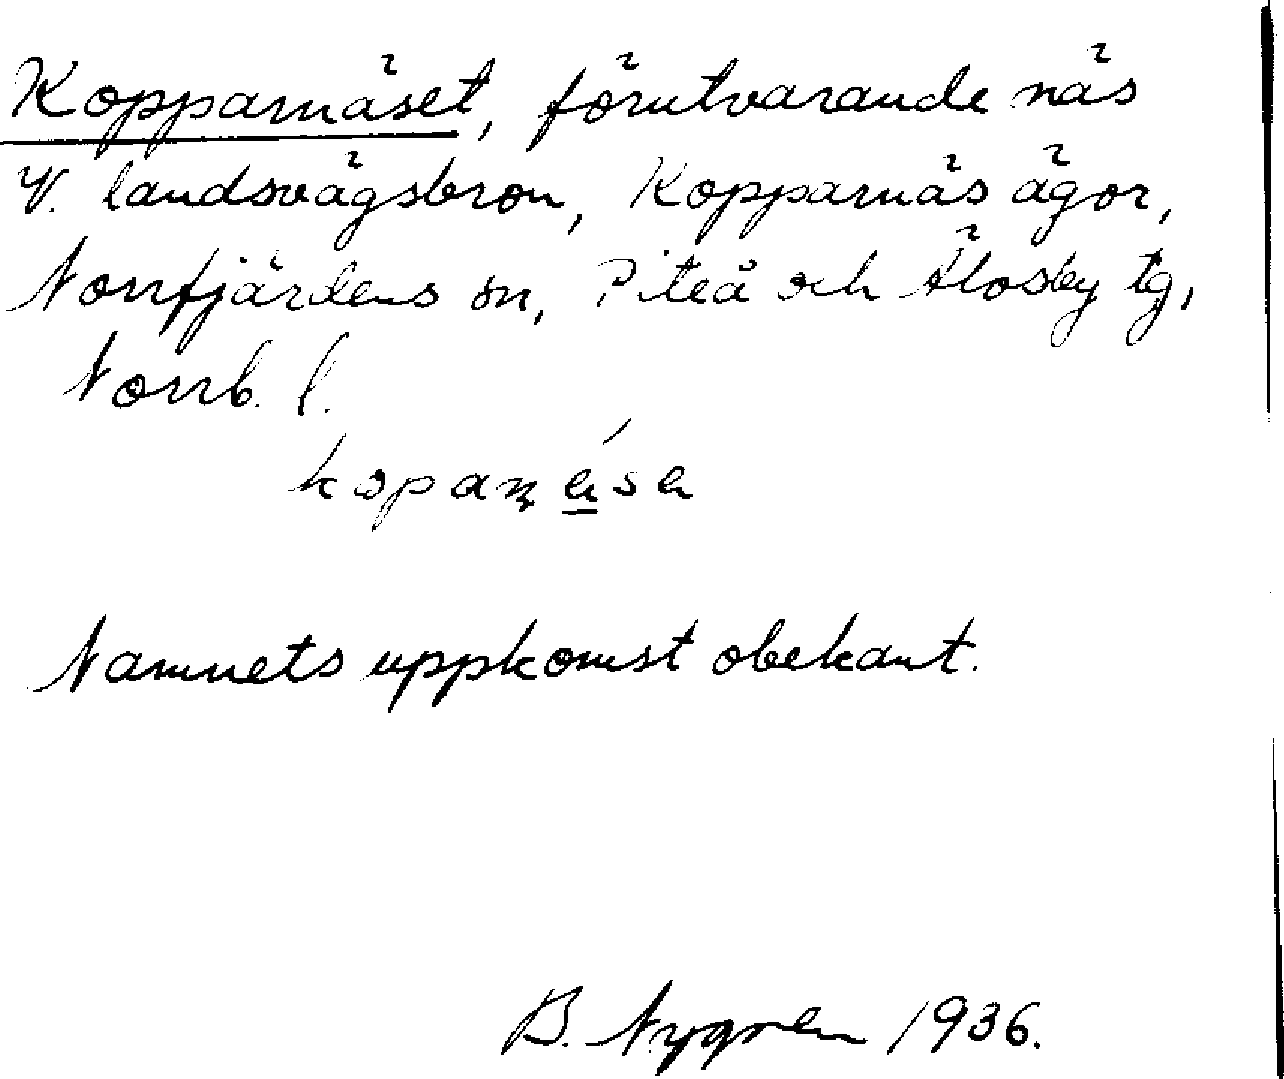 Kopparnäset, förutvarande näs
V. landsvägsbron, Kopparnäs ägor,
Norrfjärdens sn, Piteå och Älvsby tg,
Norrb. l.
Namnets uppkomst obekant.
B. Nygren 1936.